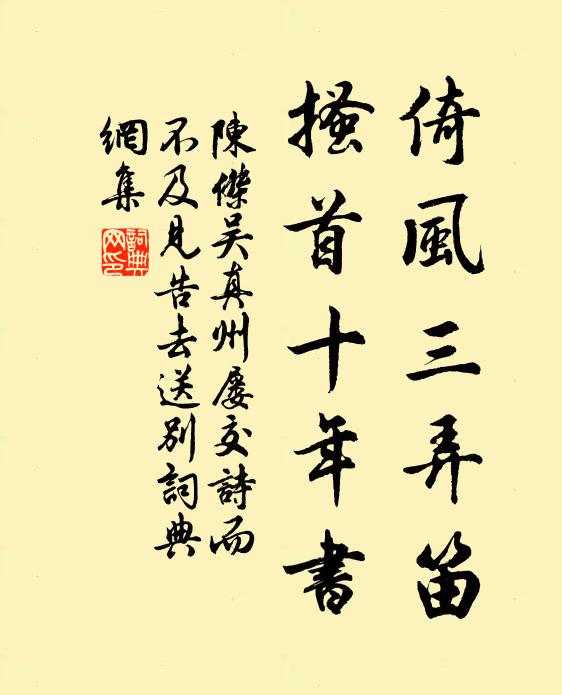 倚風三弄笛
搔首十年書
陳傑吴真州屡交詩而
不及見告去送别詞典
網集
詞典網印